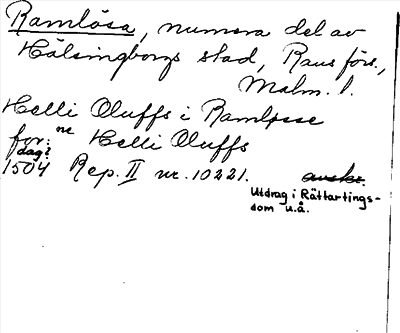 Ramlösa, numera del av
Hälsingborgs stad, Raus förs.,
Malm. l.
Helli Oluffs i Ramløsse
for: ne Helli Oluffs
dag?
1504 Rep. II nr. 10221. avskr.
Utdrag i Rättartings-
dom u.å.